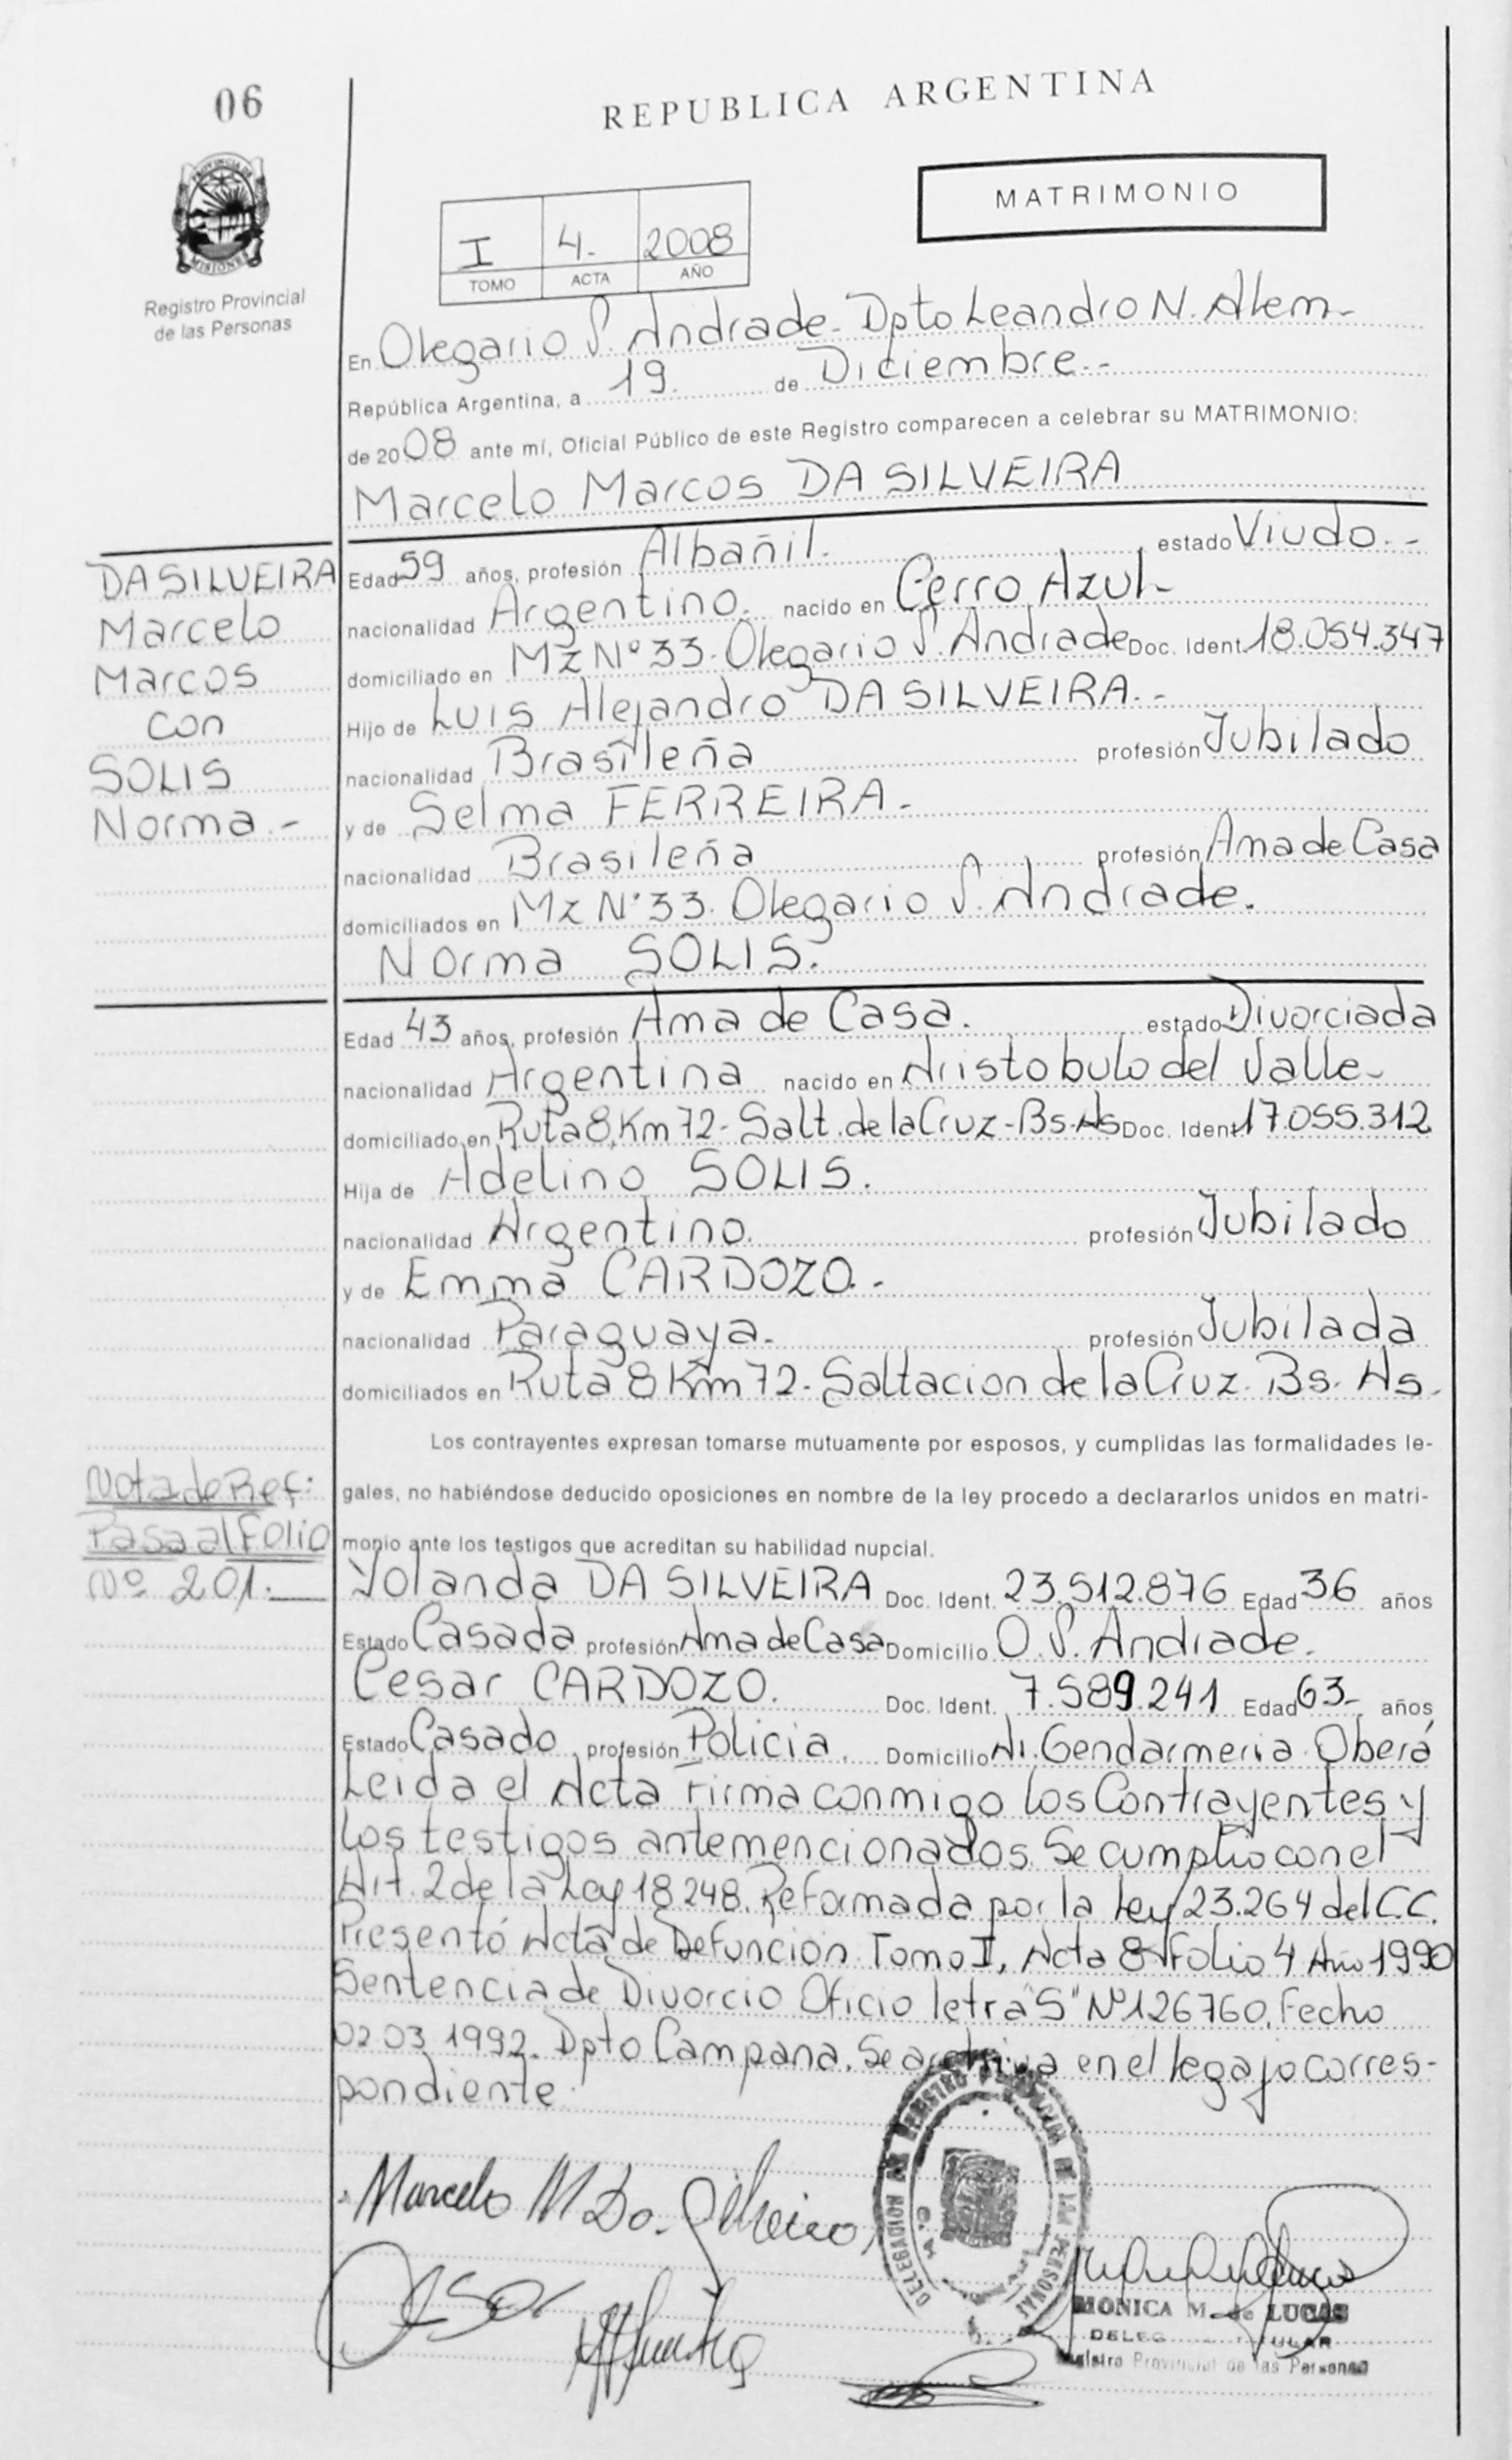 06
REPUBLICA ARGENTINA
MATRIMONIO
PROVINCIA DE
MISIONES
Registro Provincial
de las Personas
I 4- 2008
TOMO ACTA AÑO
En Olegario V. Andrade - Dpto Leandro N. Alem -
República Argentina, a 19. de Diciembre.-
de 2008 ante mí, Oficial Público de este Registro comparecen a celebrar su MATRIMONIO:
Marcelo Marcos DA SILVEIRA
DA SILVEIRA
Marcelo
Marcos
con
SOLIS
Norma.-
Edad 59 años, profesión Albañil. estado Viudo.-
nacionalidad Argentino. nacido en Cerro Azul-
domiciliado en Mz Nº 33. Olegario V. Andrade Doc. Ident. 18.054.347
Hijo de Luis Alejandro DA SILVEIRA.-
nacionalidad Brasileña profesión Jubilado
y de Selma FERREIRA-
nacionalidad Brasileña profesión Ama de Casa
domiciliados en Mz Nº 33. Olegario V. Andrade.
Norma SOLIS.
Edad 43 años, profesión Ama de Casa. estado Divorciada
nacionalidad Argentina nacido en Aristobulo del Valle-
domiciliado en Ruta 8, Km 72 - Salt. de la Cruz - Bs-As Doc. Ident. 17.055.312
Hija de Adelino SOLIS.
nacionalidad Argentino. profesión Jubilado
y de Emma CARDOZO.-
nacionalidad Paraguaya- profesión Jubilada
domiciliados en Ruta 8 Km 72 - Saltacion de la Cruz. Bs. As.
Los contrayentes expresan tomarse mutuamente por esposos, y cumplidas las formalidades le-
gales, no habiéndose deducido oposiciones en nombre de la ley procedo a declararlos unidos en matri-
monio ante los testigos que acreditan su habilidad nupcial.
Nota de Ref:
Pasa al Folio
Nº 201.
Yolanda DA SILVEIRA Doc. Ident. 23.512.876 Edad 36 años
Estado Casada profesión Ama de Casa Domicilio O. V. Andrade.
Cesar CARDOZO. Doc. Ident. 7.589.241 Edad 63- años
Estado Casado profesión Policia. Domicilio Gendarmeria Oberá
Leida el Acta Firma conmigo los Contrayentes y
los testigos antemencionados. Se cumplio con el
Art. 2 de la Ley 18.248. Reformada por la Ley 23.264 del C.C.
Presentó Acta de Defuncion Tomo I, Acta 8 Folio 4 Año 1990
Sentencia de Divorcio Oficio letra "S" Nº 126760, Fecho
02.03 1992. Dpto Campana. Se archiva en el legajo corres-
pondiente.
Marcelo M Da Silveira
MONICA M. de LUCAS
Registro Provincial de las Personas